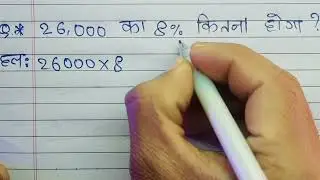 Q* 26,000 का 8% कितना होगा ?
हल: 26000×8